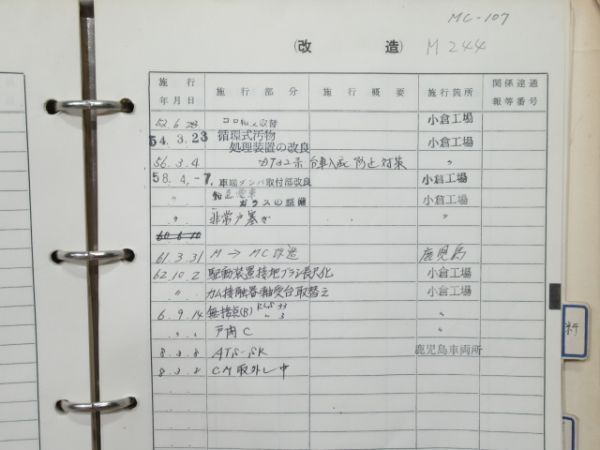 MC-107
(改 造) M244
施行年月日 施行部分 施行概要 施行箇所 関係達通報等番号
52.6.28 コロ軸受取替 小倉工場
54.3.23 循環式汚物処理装置の改良 小倉工場
56.3.4 台車入 防止対策 〃
58.4.-7 車端ダンパ取付部改良 小倉工場
〃 ガラスの整備 小倉工場
〃 非常戸塞ぎ 〃
60.6.10
61.3.31 M→MC改造 鹿児島
62.10.2 駆動装置接地ブラシ長尺化 小倉工場
〃 カム接触器軸受台取替え 小倉工場
6.9.14 無接点(B) 〃
〃 戸閉C 〃
8.3.8 ATS-SK 鹿児島車両所
8.3.8 CM取外し中
料